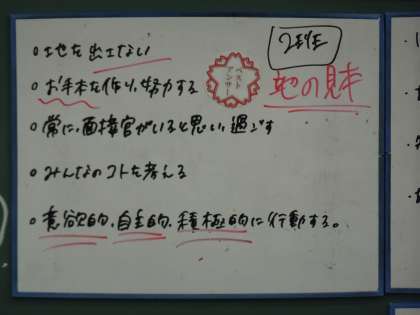 2班
○地を出さない
○お手本を作り、努力する
ベスト
アンサー
老の見本
○常に、面接官がいると思い、過ごす
○みんなのコトを考える
○意欲的、自主的、積極的に行動する。